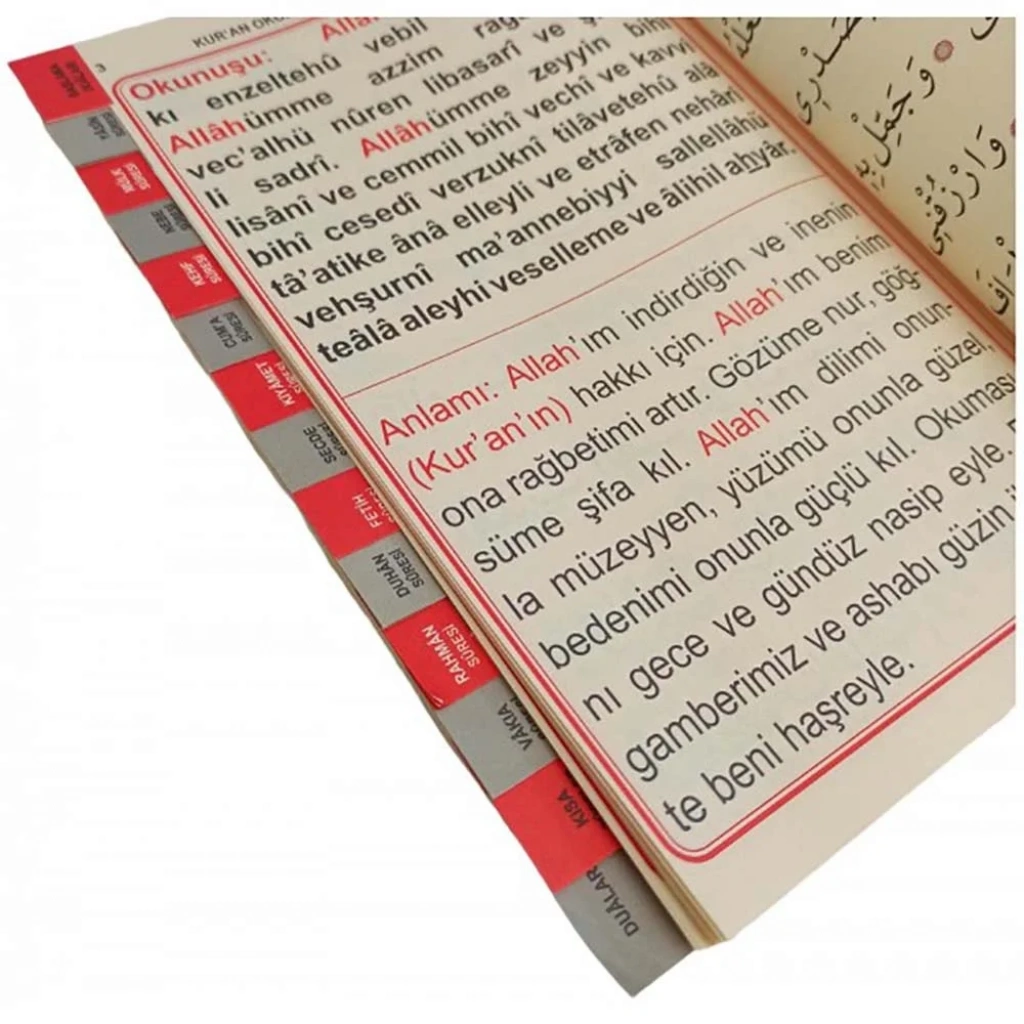 3
KUR'AN OKU
Okunuşu: Alla
kı enzeltehû vebil
Allâhümme azzim rağ
vec'alhü nûren libasarî ve ş
li sadrî. Allâhümme zeyyin bihi
lisânî ve cemmil bihî vechî ve kavvi
bihî cesedî verzuknî tilâvetehû alâ
tâ'atike ânâ elleyli ve etrâfen nehâri
vehşurnî ma'annebiyyi sallellâhü
teâlâ aleyhi veselleme ve âlihil ahyâr.
Anlamı: Allah'ım indirdiğin ve inenin
(Kur'an'ın) hakkı için. Allah'ım benim
ona rağbetimi artır. Gözüme nur, göğ-
süme şifa kıl. Allah'ım dilimi onun-
la müzeyyen, yüzümü onunla güzel
bedenimi onunla güçlü kıl. Okuması
nı gece ve gündüz nasip eyle.
gamberimiz ve ashabı güzin
te beni haşreyle.
YÂSİN SÛRESİ
MÜLK SÛRESİ
NEBE SÛRESİ
KEHF SÛRESİ
CUM'A SÛRESİ
KIYÂMET SÛRESİ
SECDE SÛRESİ
FETİH SÛRESİ
DUHÂN SÛRESİ
RAHMÂN SÛRESİ
VÂKIA SÛRESİ
KISA
DUÂLAR
وَجَمِّلْ بِهِ
وَارْزُقْنِي